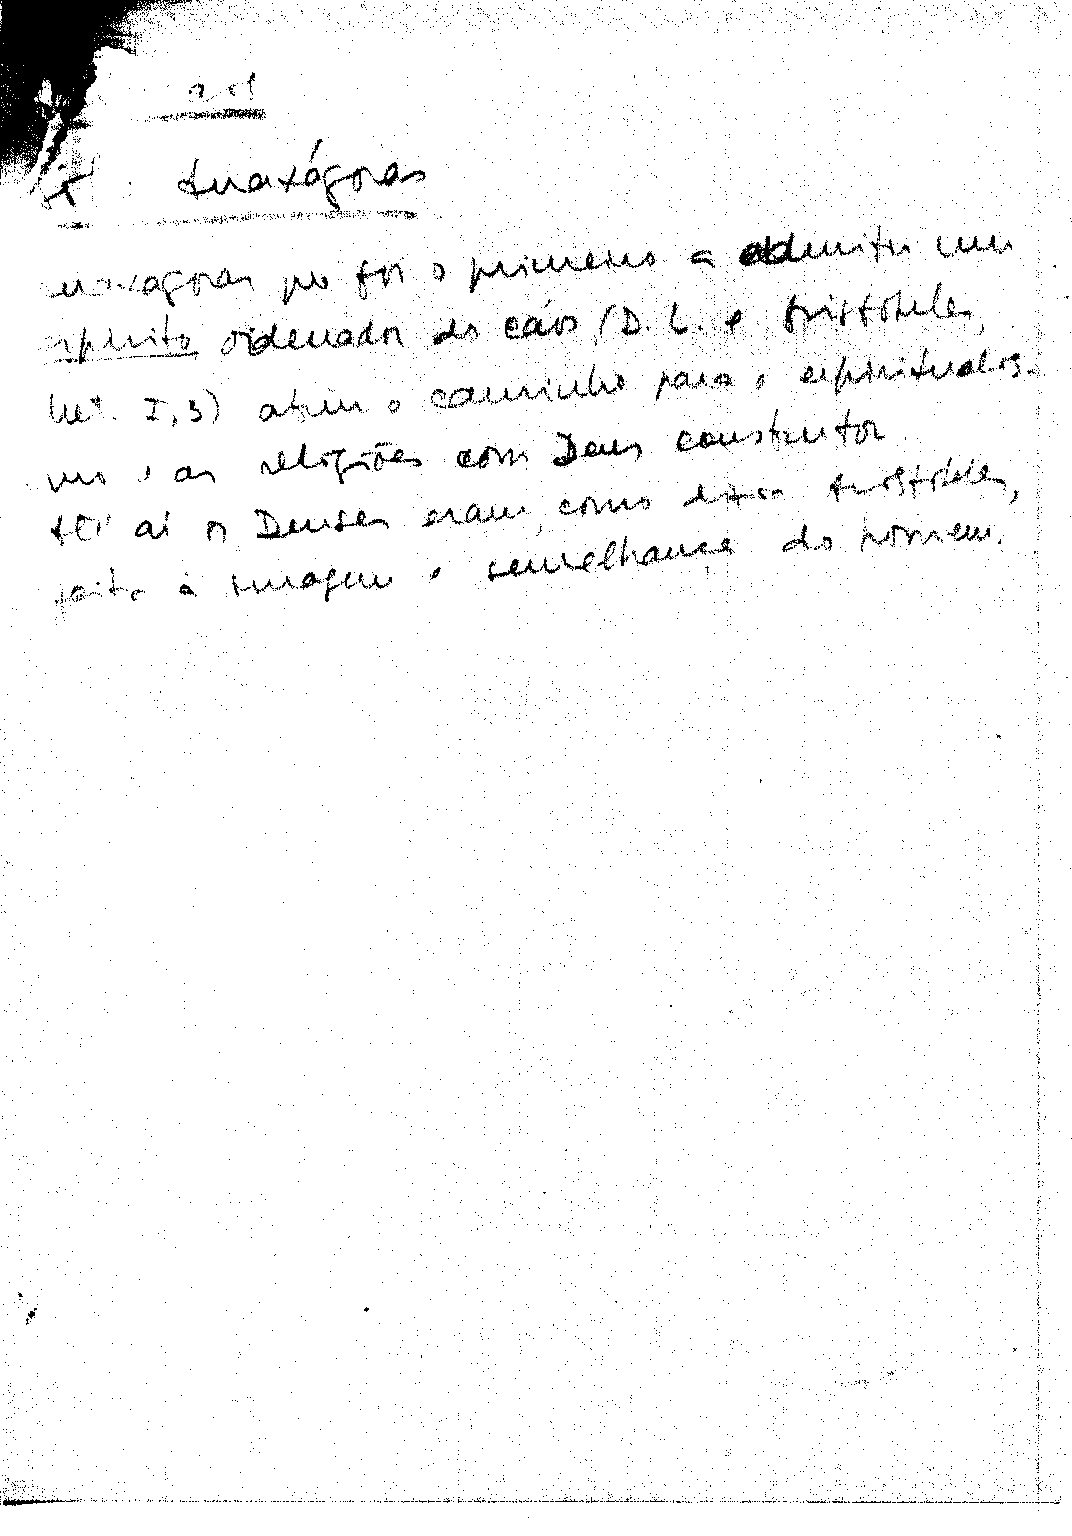 Anaxágoras
Anaxágoras que foi o primeiro a admitir um
espírito ordenador do cáos (D. L. e Aristóteles,
Met. I, 3) abriu o caminho para o espiritualis-
mo e as religiões com Deus construtor
Até aí os Deuses eram, como disse Aristóteles,
feitos à imagem e semelhança do homem.